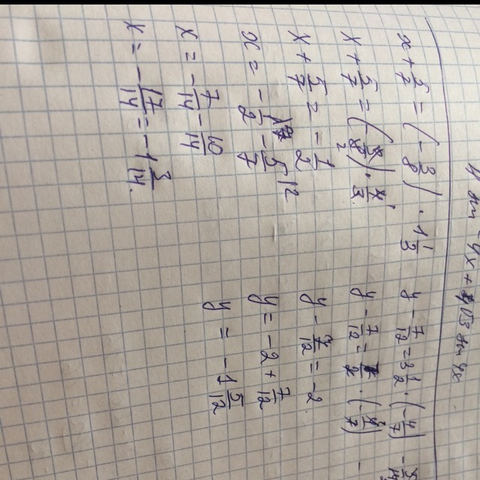 x + 5/7 = (-3/8) · 1 1/3
x + 5/7 = (-3/8) · 4/3
x + 5/7 = -1/2
x = -1/2 - 5/7
x = -7/14 - 10/14
x = -17/14 = -1 3/14.
y - 7/12 = 3 1/2 · (-4/7)
y - 7/12 = 7/2 · (-4/7)
y - 7/12 = -2
y = -2 + 7/12
y = -1 5/12